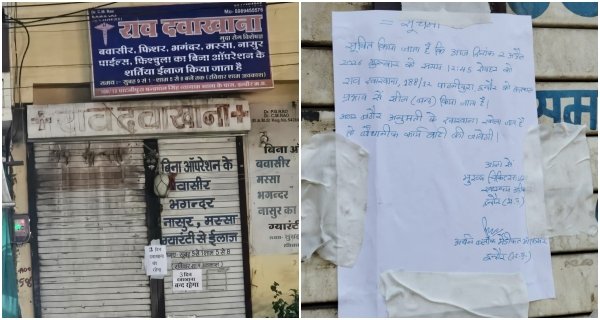 Dr. C.M. Rao
Mo.-9989456576
राव दवाखाना
गुदा रोग विशेषज्ञ
बवासीर, फिशर, भगंदर, मस्सा, नासुर
पाईल्स, फिश्चुला का बिना ऑपरेशन के
शर्तिया ईलाज किया जाता है
समय:- सुबह 9 से 1 - शाम 5 से 8 बजे तक (रविवार शाम अवकाश)
राव दवाखाना
Dr. P.N.RAO
Dr. C.M.RAO
बिना ऑपरेशन के
बवासीर
भगन्दर
नासुर, मस्सा
ग्यारंटी से ईलाज
बवासीर
मस्सा
भगन्दर
नासुर का
ग्यारंटी
3 दिन
दवाखाना
बंद
रहेगा
3 दिन
दवाखाना
बन्द रहेगा
= सूचना =
सूचित किया जाता है कि आज दिनांक 2 अप्रैल
2026 गुरूवार को समय 12:45 दोपहर को
राव दवाखाना, 188/12 पाटनीपुरा, इन्दौर को तत्काल
प्रभाव से सील (बन्द) किया जाता है।
अगर बगैर अनुमती के दवाखाना खोला जाता है
तो वैधानीक कार्यवाही की जावेगी।
आज्ञा से
मुख्य चिकित्सा एवं
स्वास्थ्य
इन्दौर (म.प्र.)
इन्दौर (म.प्र.)